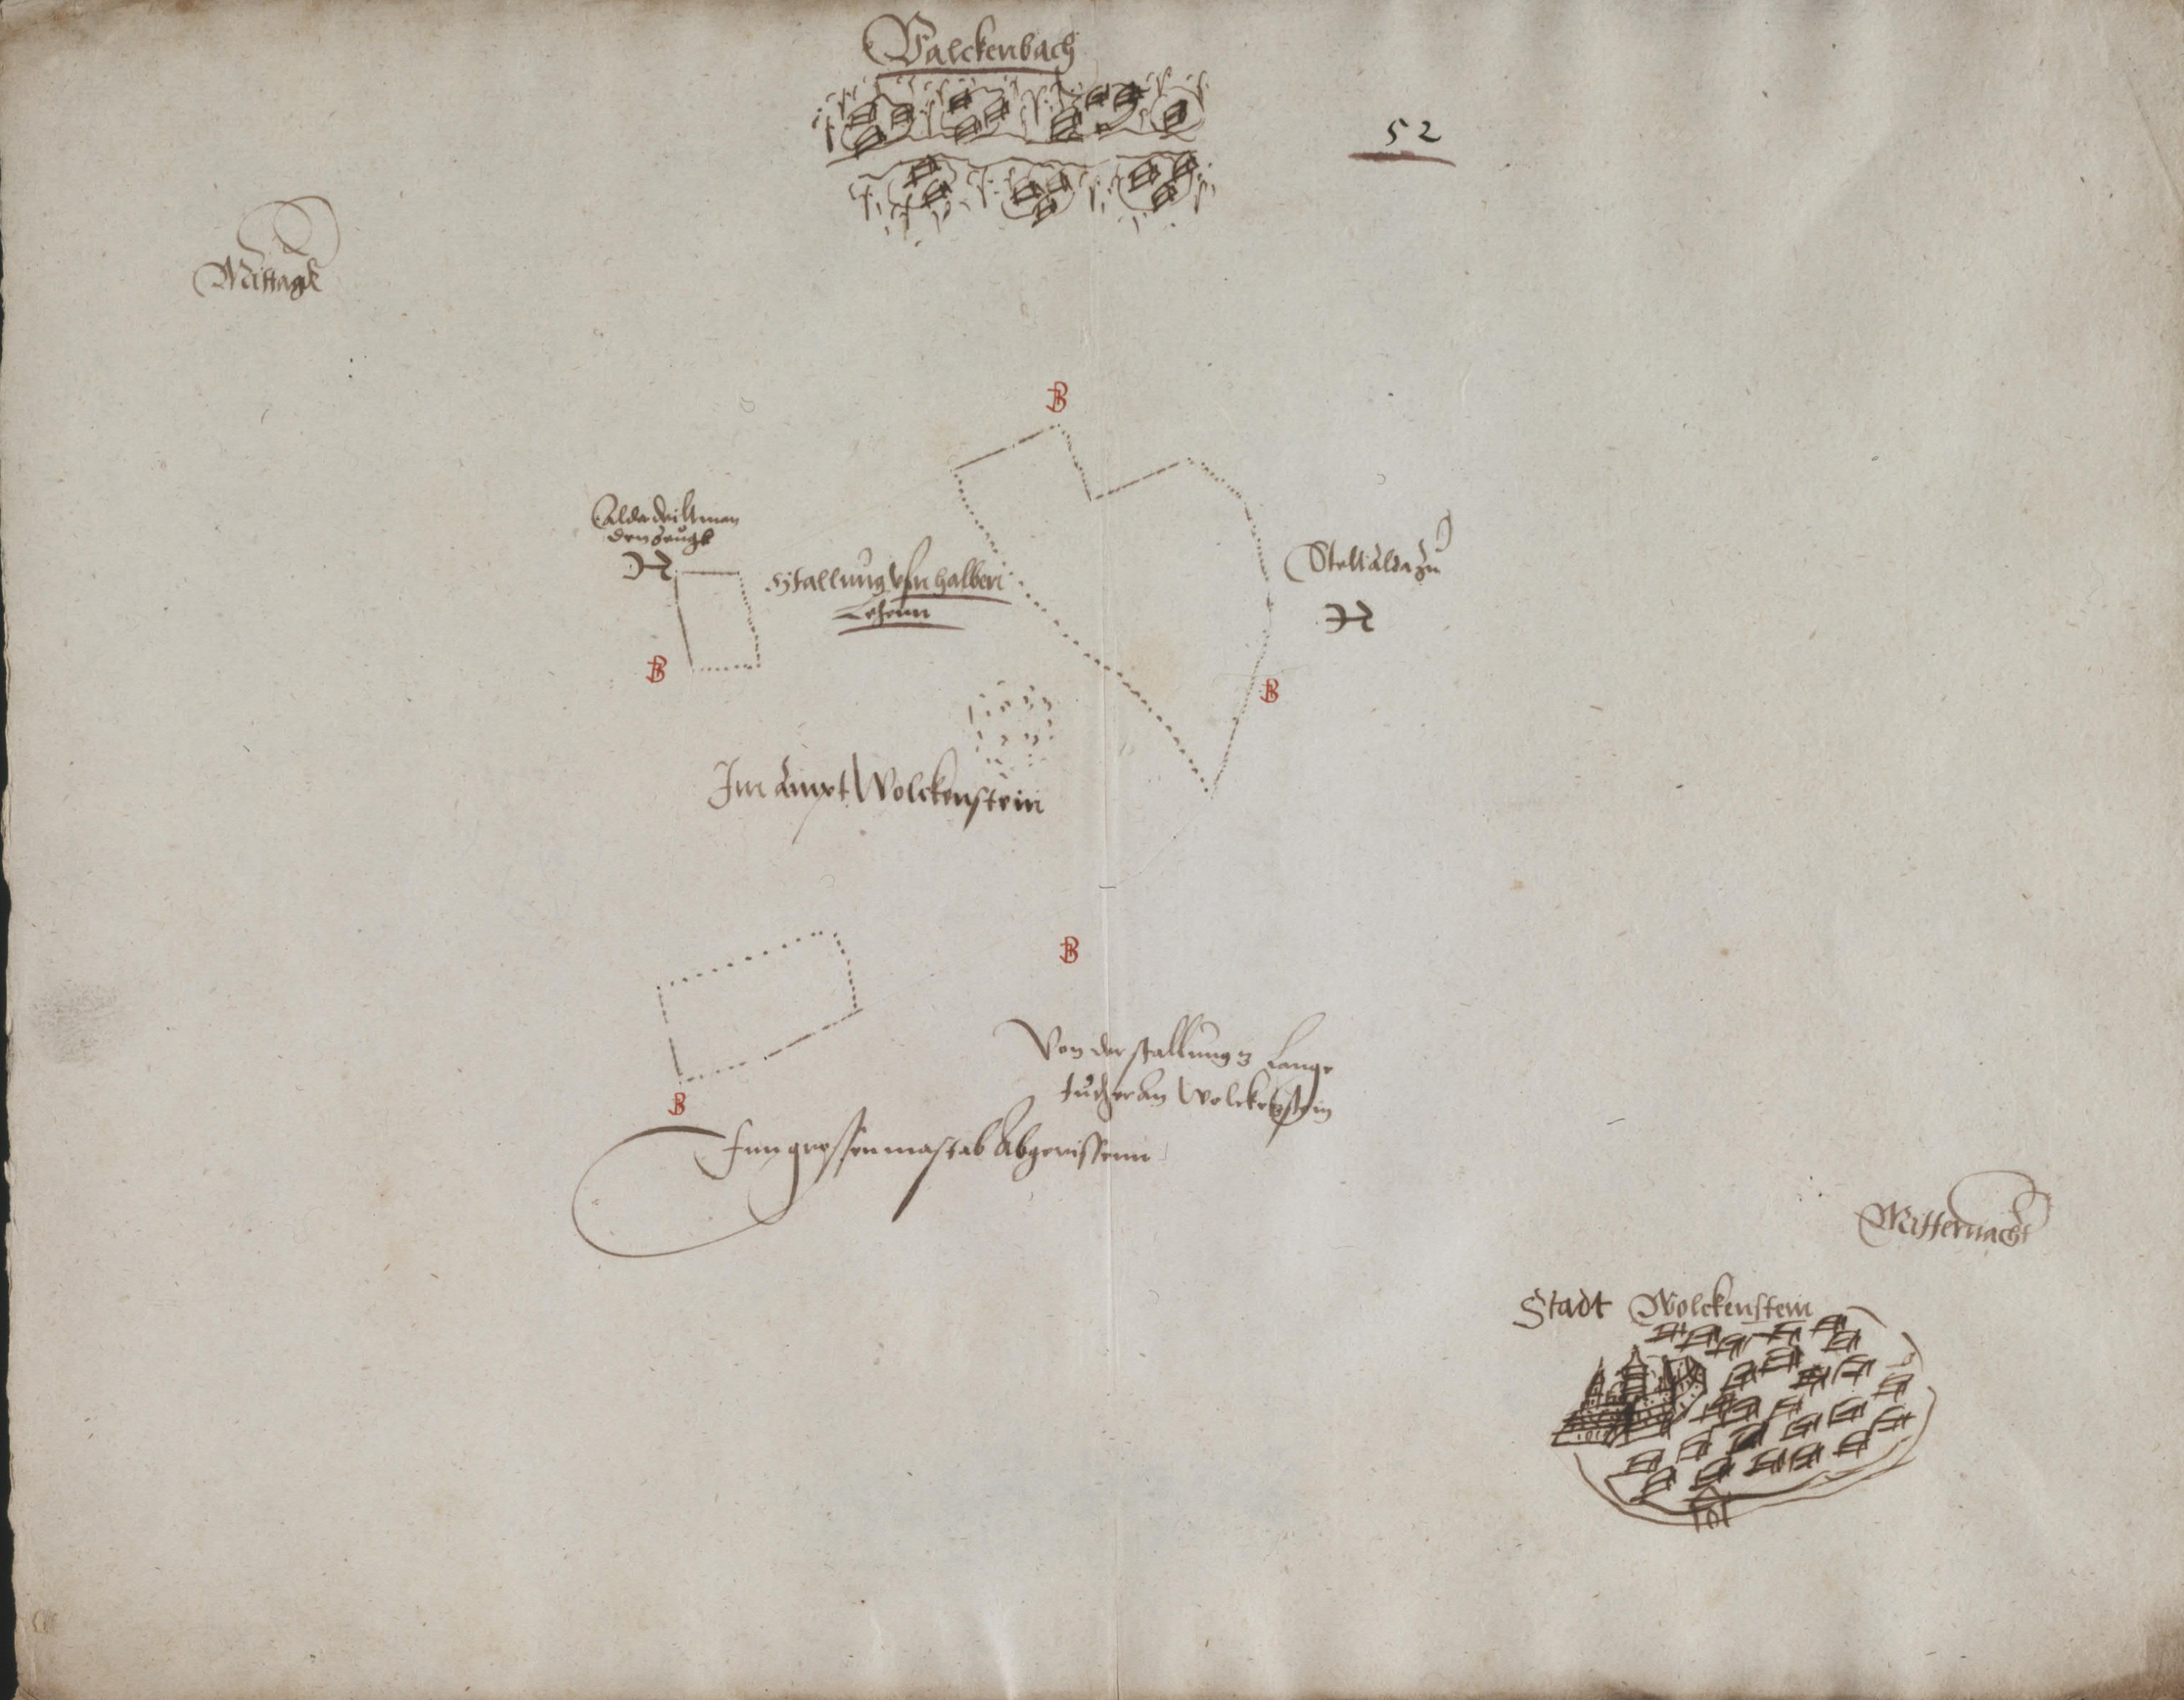 Valckenbach
52
Mittagk
B
Alda deilt man
den Zeugk
Stallung Vfn halben
Lehenn
Stelt alda zu
B
B
Im Ampt Wolckenstein
B
Von der stallung 3 Lange
tucher an Wolckenstein
B
Jnn grossen mastab Abgerissenn
Mitternacht
Stadt Wolckenstein